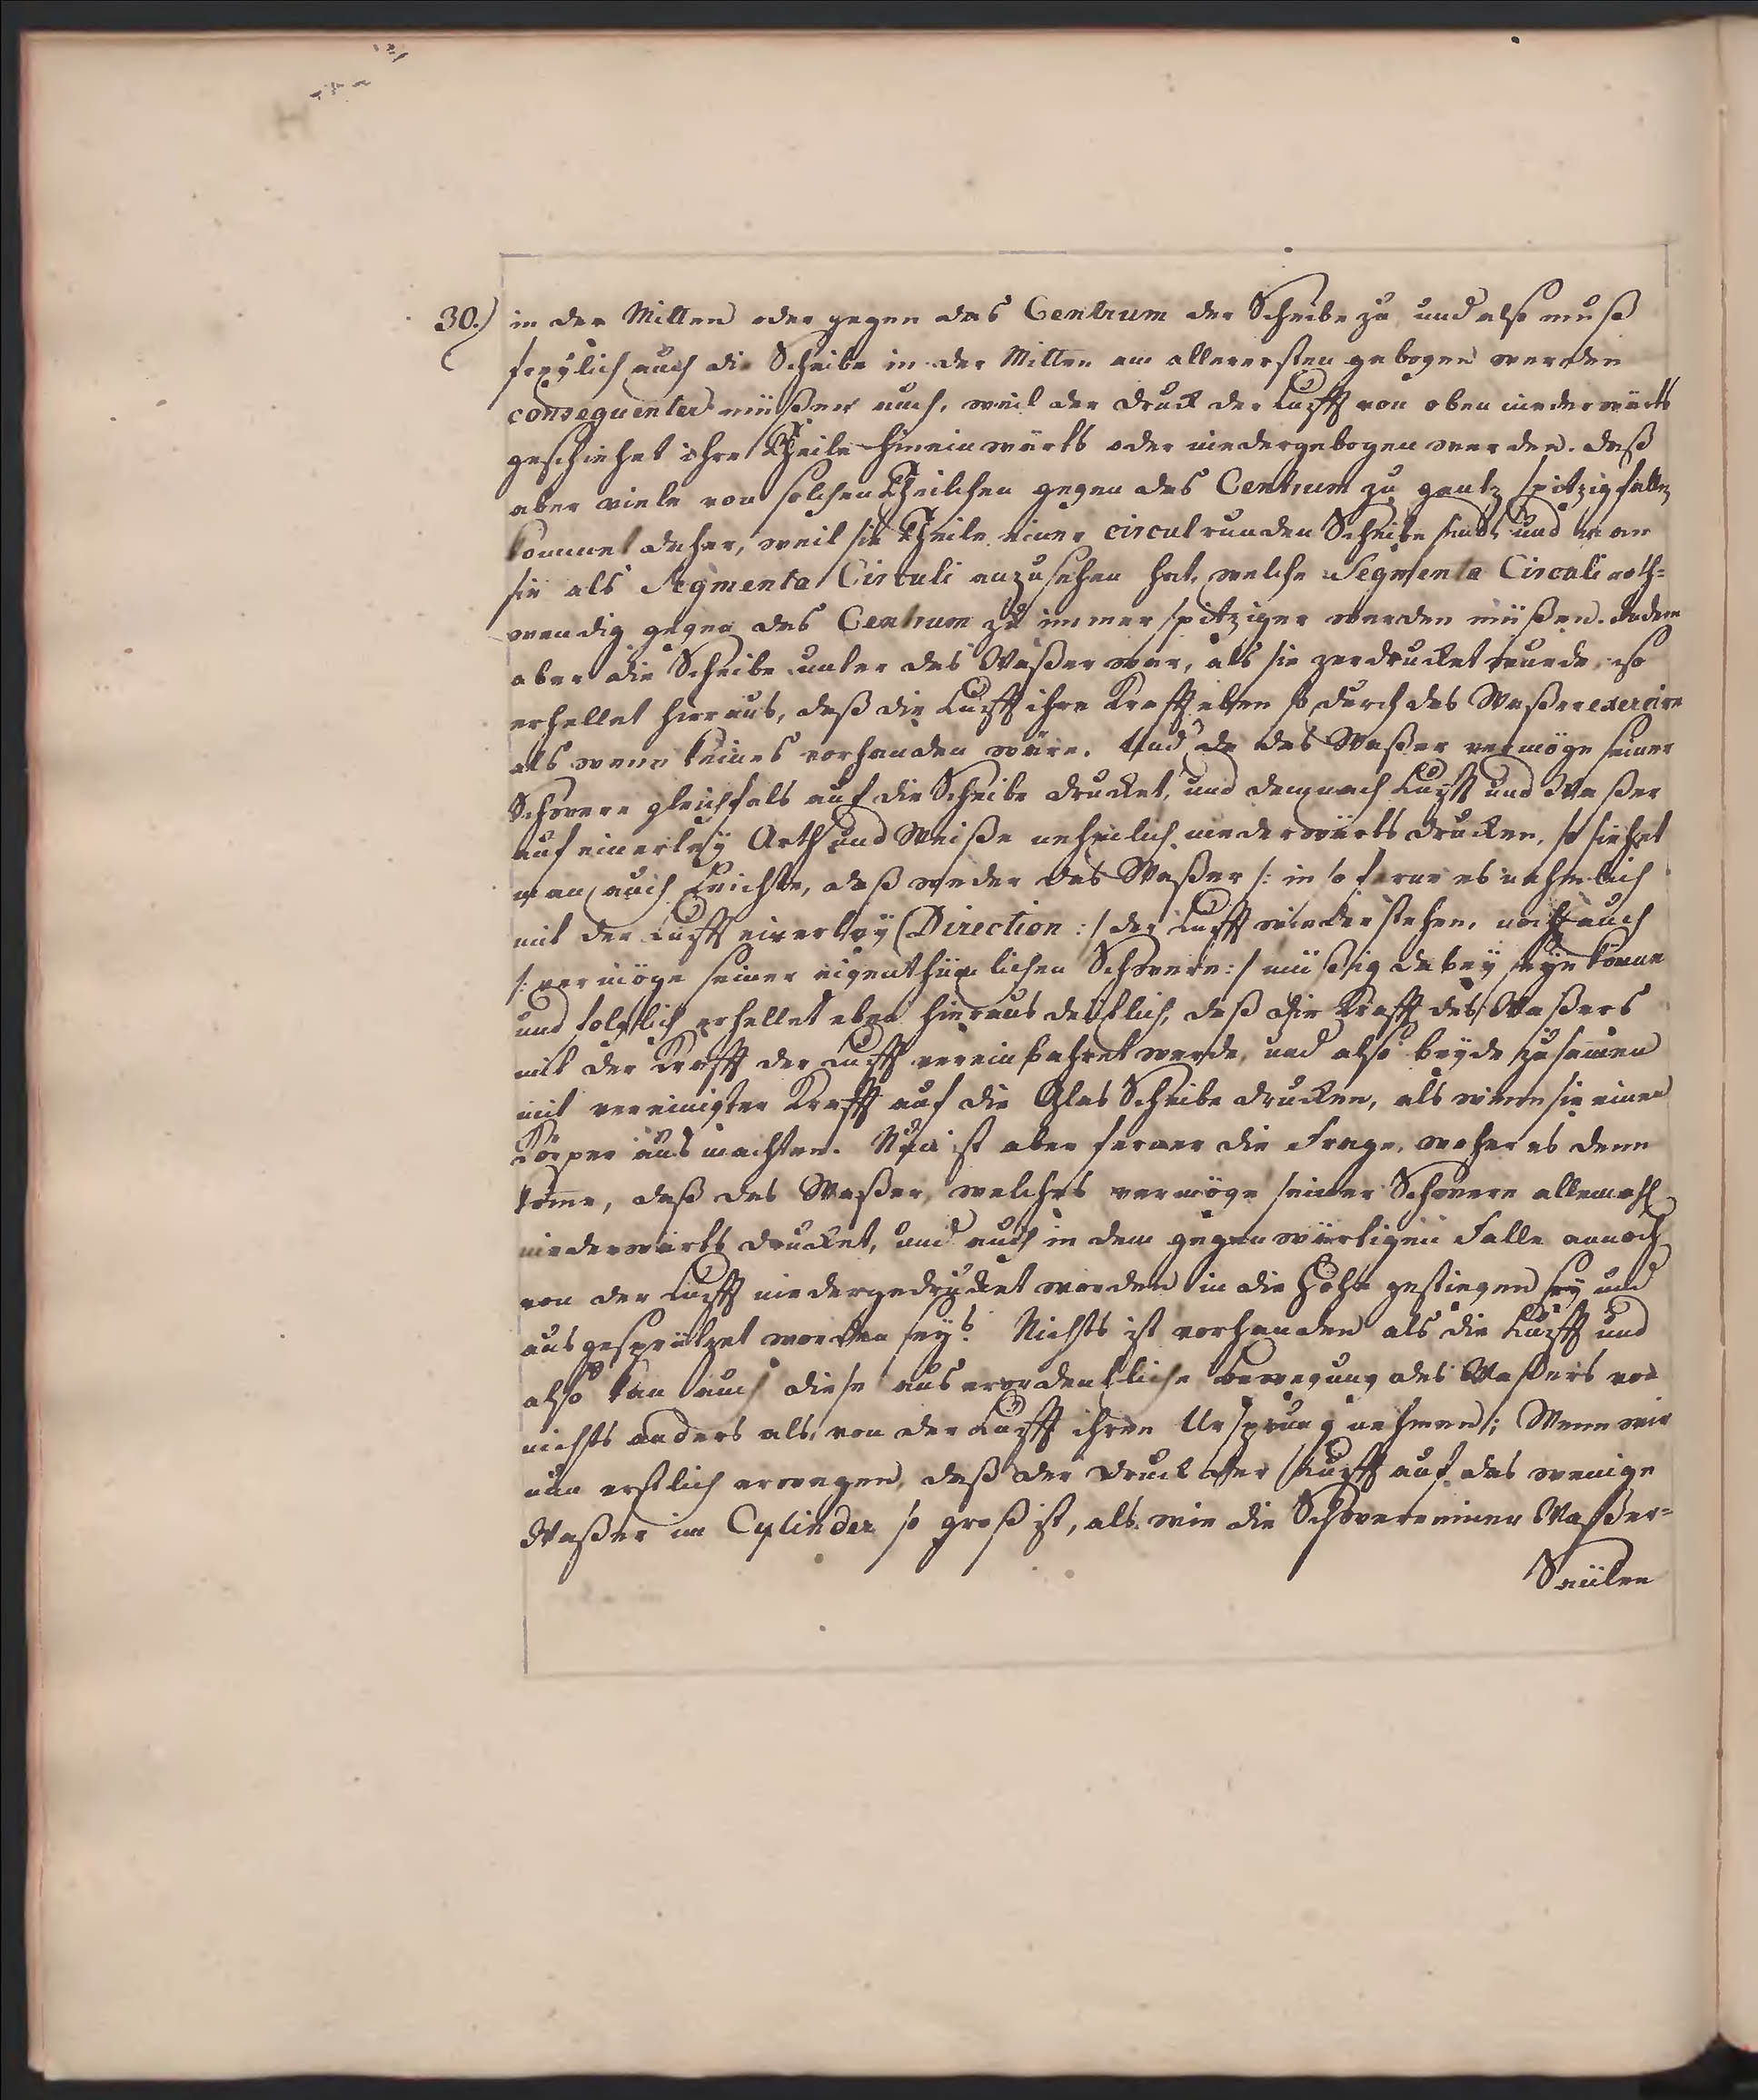 30.) in der Mitten oder gegen das Centrum der Scheibe zu und also muß
freylich auch die Scheibe in der Mitten am allerersten gebogen werden
consequenter müßen auch, weil der Druck der Lufft von oben niederwärts
geschiehet ihre Theile hineinwärts oder niedergebogen werden. Daß
aber viele von solchen Theilchen gegen das Centrum zu gantz spitzig fallen
kommet daher, weil sie Theile einer circulrunden Scheibe sind, und man
sie als Segmenta Circuli anzusehen hat, welche Segmenta Circuli noth=
wendig gegen das Centrum zu immer spitziger werden müßen. Indem
aber die Scheibe unter das Waßer war, als sie zerdrucket wurde, so
erhellet hieraus, daß die Lufft ihre Krafft eben so durch das Waßer exercire
als wenn keines vorhanden wäre. Und da das Waßer vermöge seiner
Schwere gleichfals auf die Scheibe drucket, und demnach Lufft und Waßer
auf einerley Arth und Weiße nehmlich niederwärts drucken, so siehet
man auch leichte, daß weder das Waßer /: in so ferne es nehmlich
mit der Lufft einerley Direction :/ der Lufft wiederstehen, noch auch
/: vermöge seiner eigenthümlichen Schwere :/ müßig dabey seyn könne
und folglich erhellet eben hieraus deutlich, daß die Krafft des Waßers
mit der Krafft der Lufft vereinbahret werde, und also beyde zusamen
mit vereinigter Krafft auf die Glas Scheibe drucken, als wenn sie einen
Körper ausmachten. Nun ist aber ferner die Frage, woher es denn
kome, daß das Waßer, welches vermöge seiner Schwere allemahl
niederwärts drucket, und auch in dem gegenwärtigen Falle annoch
von der Lufft niedergedrucket worden in die Höhe gestiegen sey und
ausgesprützet worden sey? Nichts ist vorhanden als die Lufft und
also kan auch diese auserordentliche Bewegung des Waßers von
nichts anders als von der Lufft ihren Ursprung nehmen; Wenn wir
nun erstlich erwegen, daß der Druck der Lufft auf das wenige
Waßer im Cylinder so groß ist, als wie die Schwere einer Waßer=
Säulen